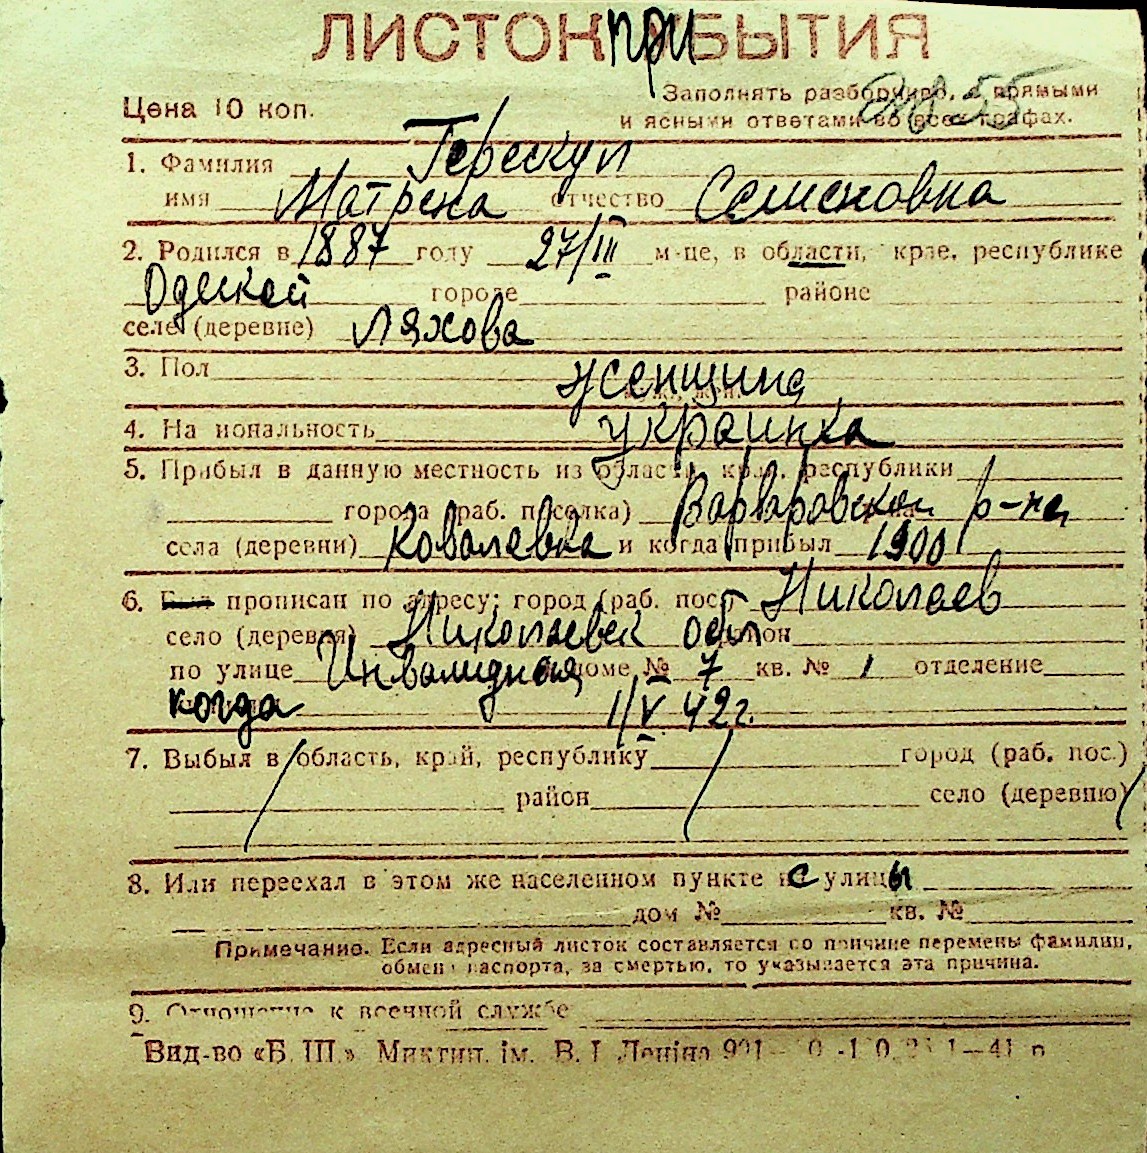 ЛИСТОК ПРИБЫТИЯ
Цена 10 коп.
Заполнять разборчиво, с прямыми
и ясными ответами во всех графах.
1. Фамилия Терескул
имя Матрена отчество Семеновна
2. Родился в 1887 году 27/III м-це, в области, крае, республике
Одеской городе районе
селе (деревне) Ляхова
3. Пол женщина
4. На иональность украинка
5. Прибыл в данную местность из области, края, республики
города (раб. поселка) Варваровской р-на
села (деревни) Ковалевка и когда прибыл 1900
6. прописан по адресу: город (раб. пос.) Николаев
село (деревня) Николаевск обл район
по улице Инвалидная доме № 7 кв. № 1 отделение
когда 1/V 42 г.
7. Выбыл в область, край, республику город (раб. пос.)
район село (деревню)
8. Или переехал в этом же населенном пункте с улицы
дом № кв. №
Примечание. Если адресный листок составляется по причине перемены фамилии,
обмена паспорта, за смертью, то указывается эта причина.
9. Отношение к военной службе
Вид-во «Б. Ш.» Миктип. ім. В. І Леніна